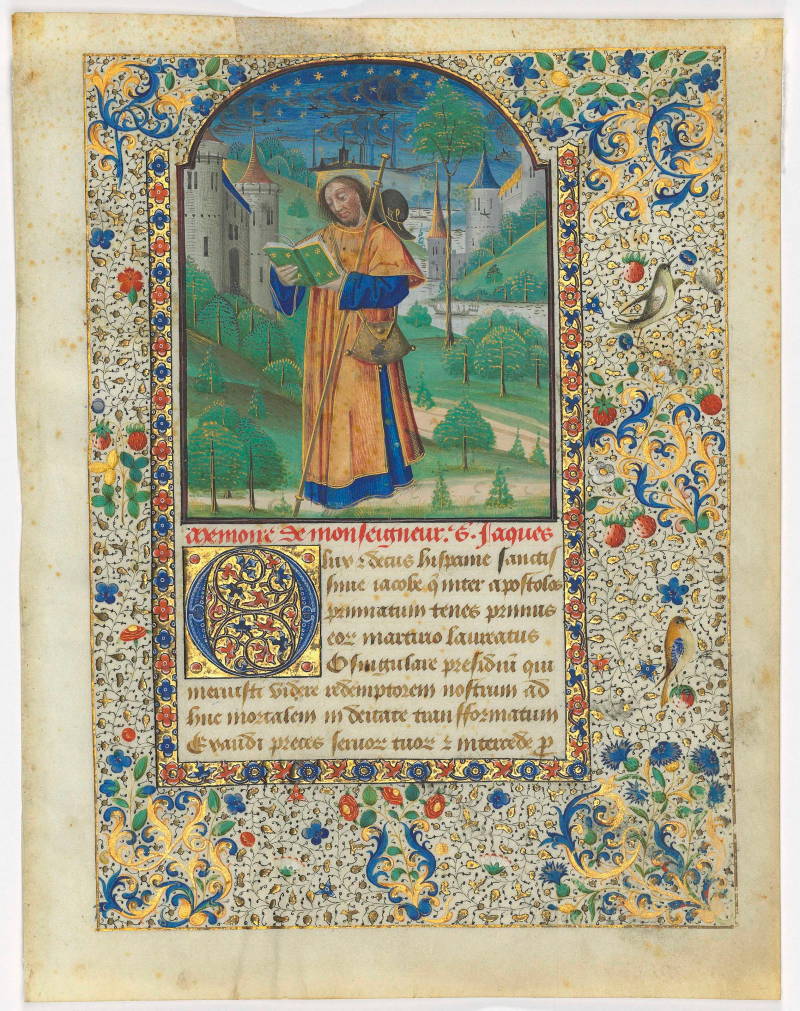 Memoire de monseigneur. S. Jaques
O lux ⁊ decus hispanie sanctis
sime iacobe q̇ inter apostolos
primatum tenes primus
eoꝝ martirio laureatus
O singulare presidiū qui
meruisti videre redemptorem nostrum ad
huc mortalem in deitate transformatum
Exaudi preces seruoꝝ tuoꝝ ⁊ intercede ꝓ